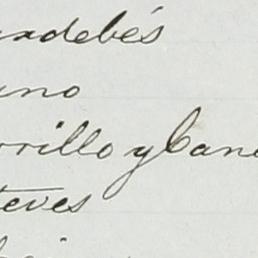 radebés
uno
rrillo y Cane
teves